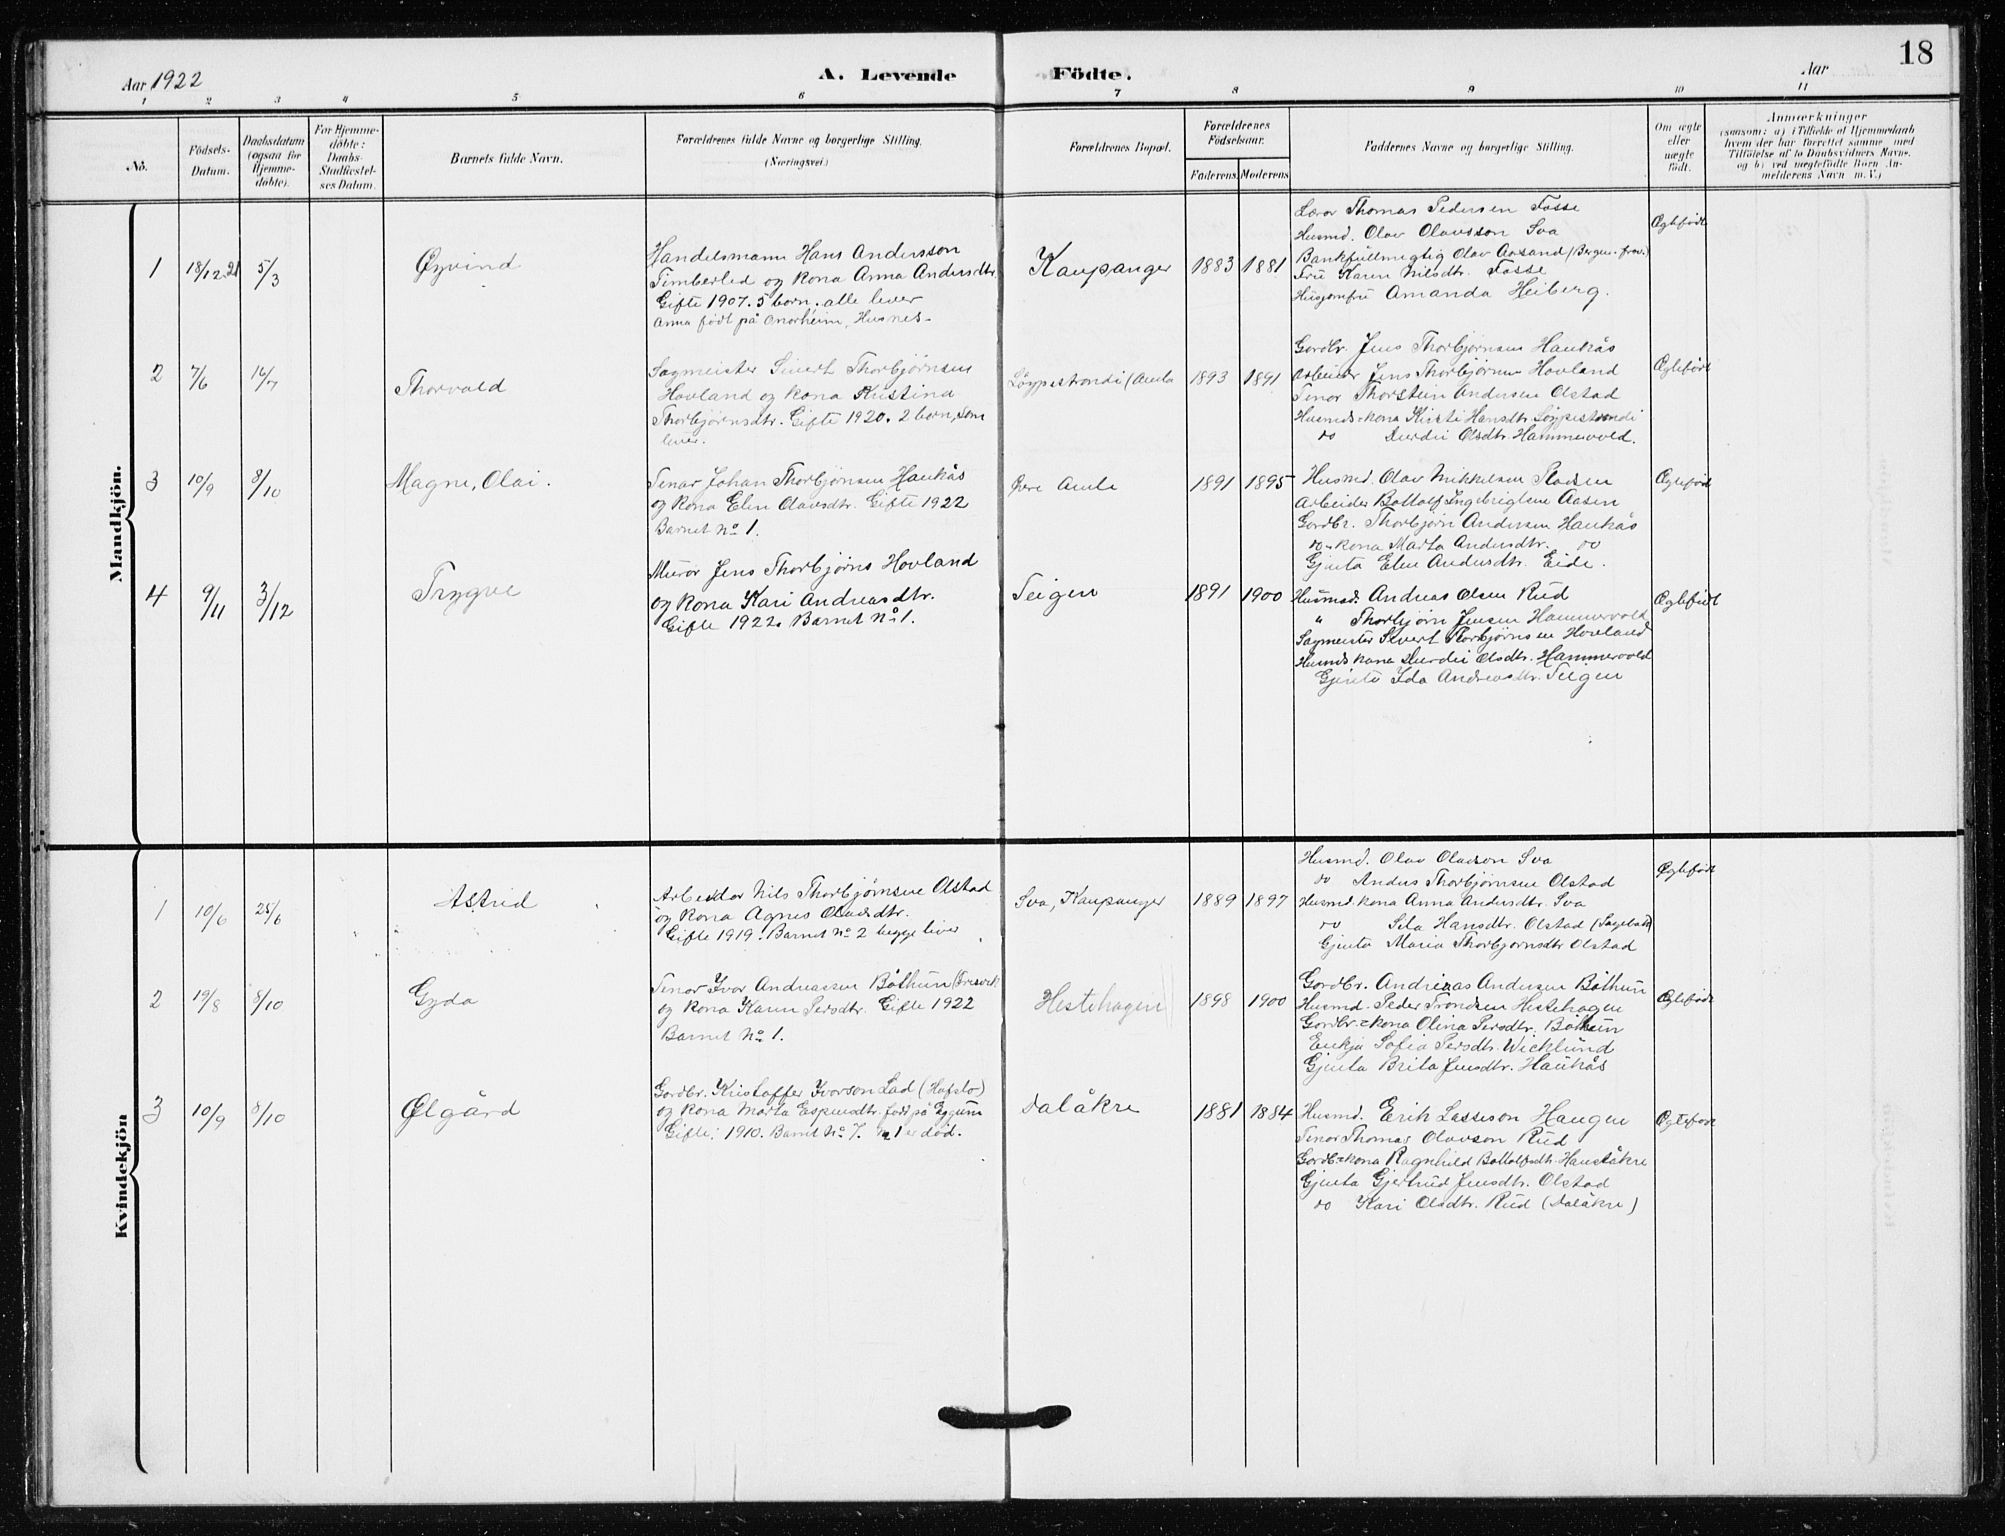 18
Aar 1922
A. Levende
Födte.
Aar
1 2 3 4 5 6 7 8 9 10 11
No.
Födsels-
Datum.
Daabsdatum
(ogsaa for
Hjemme-
döbte).
For Hjemme-
döbte:
Daabs-
Stadfæstel-
ses Datum.
Barnets fulde Navn.
Forældrenes fulde Navne og borgerlige Stilling.
(Næringsvei.)
Forældrenes Bopæl.
Forældrenes
Födselsaar.
Faderens. Moderens.
Faddernes Navne og borgerlige Stilling.
Om ægte
eller
uægte
födt.
Anmærkninger
(saasom: a) i Tilfælde af Hjemmedaab
hvem der har forrettet samme med
Tilföielse af to Daabsvidners Navne,
og b) ved uægtefödte Born An-
melderens Navn m. V.)
Mandkjön.
1
18/12 21
5/3
Øyvind
Handelsmann Hans Andersson
Timberlid og kona Anna Andersdtr.
Gifte 1907. 5 born, alle lever
Anna født på Onarheim, Husnes-
Kaupanger
1883
1881
Lærar Thomas Pedersen Fosse
Husmd. Olav Olavsson Sva
Bankfullmegtig Olav Aasand (Bergen. frav.)
Fru Karen Nilsdtr. Fosse
Husjomfru Amanda Heiberg.
Ægtefødt
2
7/6
16/7
Thorvald
Sagmeister Sivert Thorbjørnsen
Hovland og kona Kristina
Thorbjørnsdtr. Gifte 1920. 2 born, som
lever.
Løypestrondi (Amla
1893
1891
Gardbr. Jens Thorbjørnsen Haukås
Arbeider Jens Thorbjørnsen Hovland
Tenar Thorstein Andersen Olstad
Husmds-kona Kirsti Hansdtr. Løypestrondi
do Durdei Olsdtr. Hammervold.
Ægtefødt
3
10/9
8/10
Magne, Olai.
Tenar Johan Thorbjørnsen Haukås
og kona Elen Olavsdtr. Gifte 1922
Barnet No 1.
Øvre Amla
1891
1895
Husmd. Olav Mikkelsen
Arbeider Bottolf Ingebrigtsen Aasen
Gardbr. Thorbjørn Andersen Haukås
do - kona Marta Andersdtr. do
Gjenta Elen Andersdtr. Eide.
Ægtefødt
4
9/11
3/12
Trygve
Murar Jens Thorbjørns Hovland
og kona Kari Andreasdtr.
Gifte 1922. Barnet No 1.
Teigen
1891
1900
Husmd. Andreas Olsen Rud
" Thorbjørn Jensen Hammervold
Sagmeister Sivert Thorbjørnsen Hovland
Husmds kona Durdei Olsdtr. Hammervold
Gjenta Ida Andreasdtr. Teigen
Ægtefødt
Kvindekjön
1
10/6
25/6
Astrid
Arbeidar Nils Thorbjørnsen Olstad
og kona Agnes Olavsdtr.
Gifte 1919. Barnet No 2 begge liver
Sva, Kaupanger
1889
1897
Husmd. Olav Olavson Sva
do Anders Thorbjørnsen Olstad
Husmd. kona Anna Andersdtr. Sva
do Sila Hansdtr. Olstad
Gjenta Maria Thorbjørnsdtr Olstad
Ægtefødt
2
19/8
8/10
Gyda
Tenar Ivar Andreassen Båthun (Fresvik
og kona Karen Persdtr. Gifte 1922
Barnet No 1.
Hestehagen
1898
1900
Gardbr. Andreas Andersen Båthun
Husmd. Peder Trondsen Hestehagen
Gardbr.-kona Olina Persdtr. Båthun
Enkja Sofia Persdtr. Wicklund
Gjenta Brita Jensdtr. Haukås
Ægtefødt
3
10/9
8/10
Ølgård
Gardbr. Kristaffer Ivarson Lad (Hafslo)
og kona Marta Espensdtr. født på Eggum
Gifte: 1910. Barnet No 7. 1 er død.
Dalåkre
1881
1884
Husmd. Erik Lasseson Haugen
Tenar Thomas Olavson Rud
Gardbr-kona Ragnhild Bottolfsdtr. Hanståkre
Gjenta Gjertrud Jensdtr. Olstad
do Kari Olsdtr. Rud (Dalåkre)
Ægtefødt